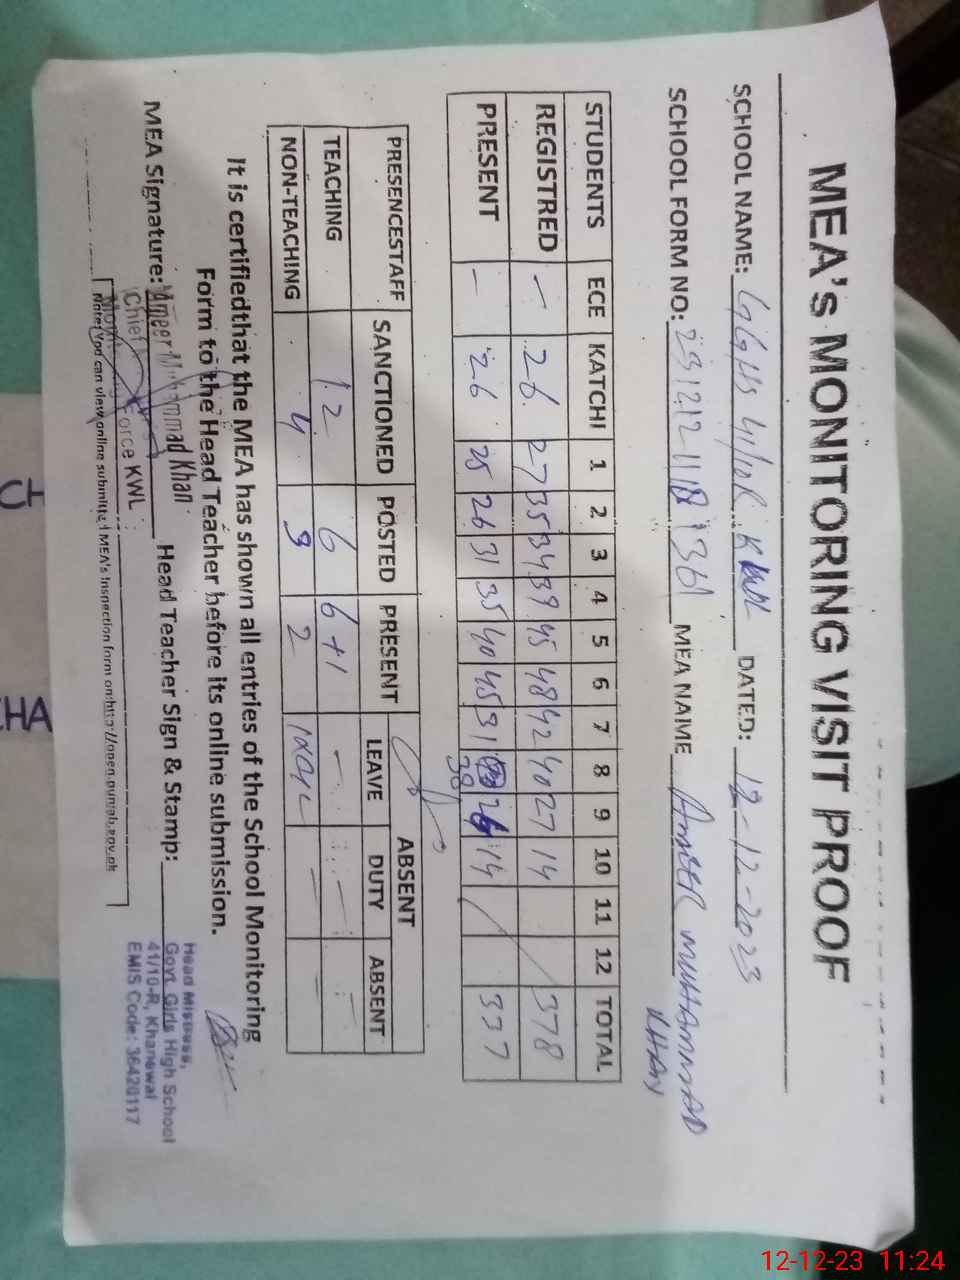 MEA's MONITORING VISIT PROOF
SCHOOL NAME: GGHS 41/10R KWL DATED: 12-12-2023
SCHOOL FORM NO: MEA NAME AMEER MUHAMMAD KHAN
STUDENTS ECE KATCHI 1 2 3 4 5 6 7 8 9 10 11 12 TOTAL
REGISTRED — 26 27 35 34 39 45 48 42 40 27 14 378
PRESENT — 26 25 26 31 35 40 45 31 38 26 14 337
PRESENCESTAFF SANCTIONED POSTED PRESENT ABSENT
LEAVE DUTY ABSENT
TEACHING 12 6 6+1 — — —
NON-TEACHING 4 3 2 — —
It is certifiedthat the MEA has shown all entries of the School Monitoring
Form to the Head Teacher before its onilne submission.
MEA Signature: Ameer Muhammad Khan Head Teacher Sign & Stamp:
Chief
Force KWL
Head Mistress,
Govt. Girls High School
41/10-R, Khanewal
EMIS Code: 36420117
Note: You can view online submitted MEA's Inspection form on:http://open.punjab.gov.pk
CH
CHA
12-12-23 11:24